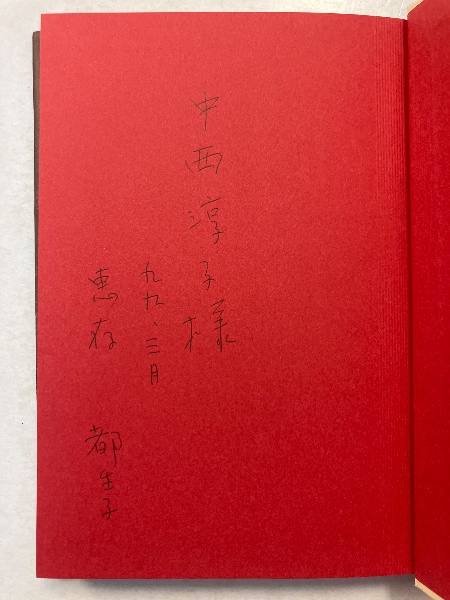 中西淳子様
九九、三月
恵存 都生子